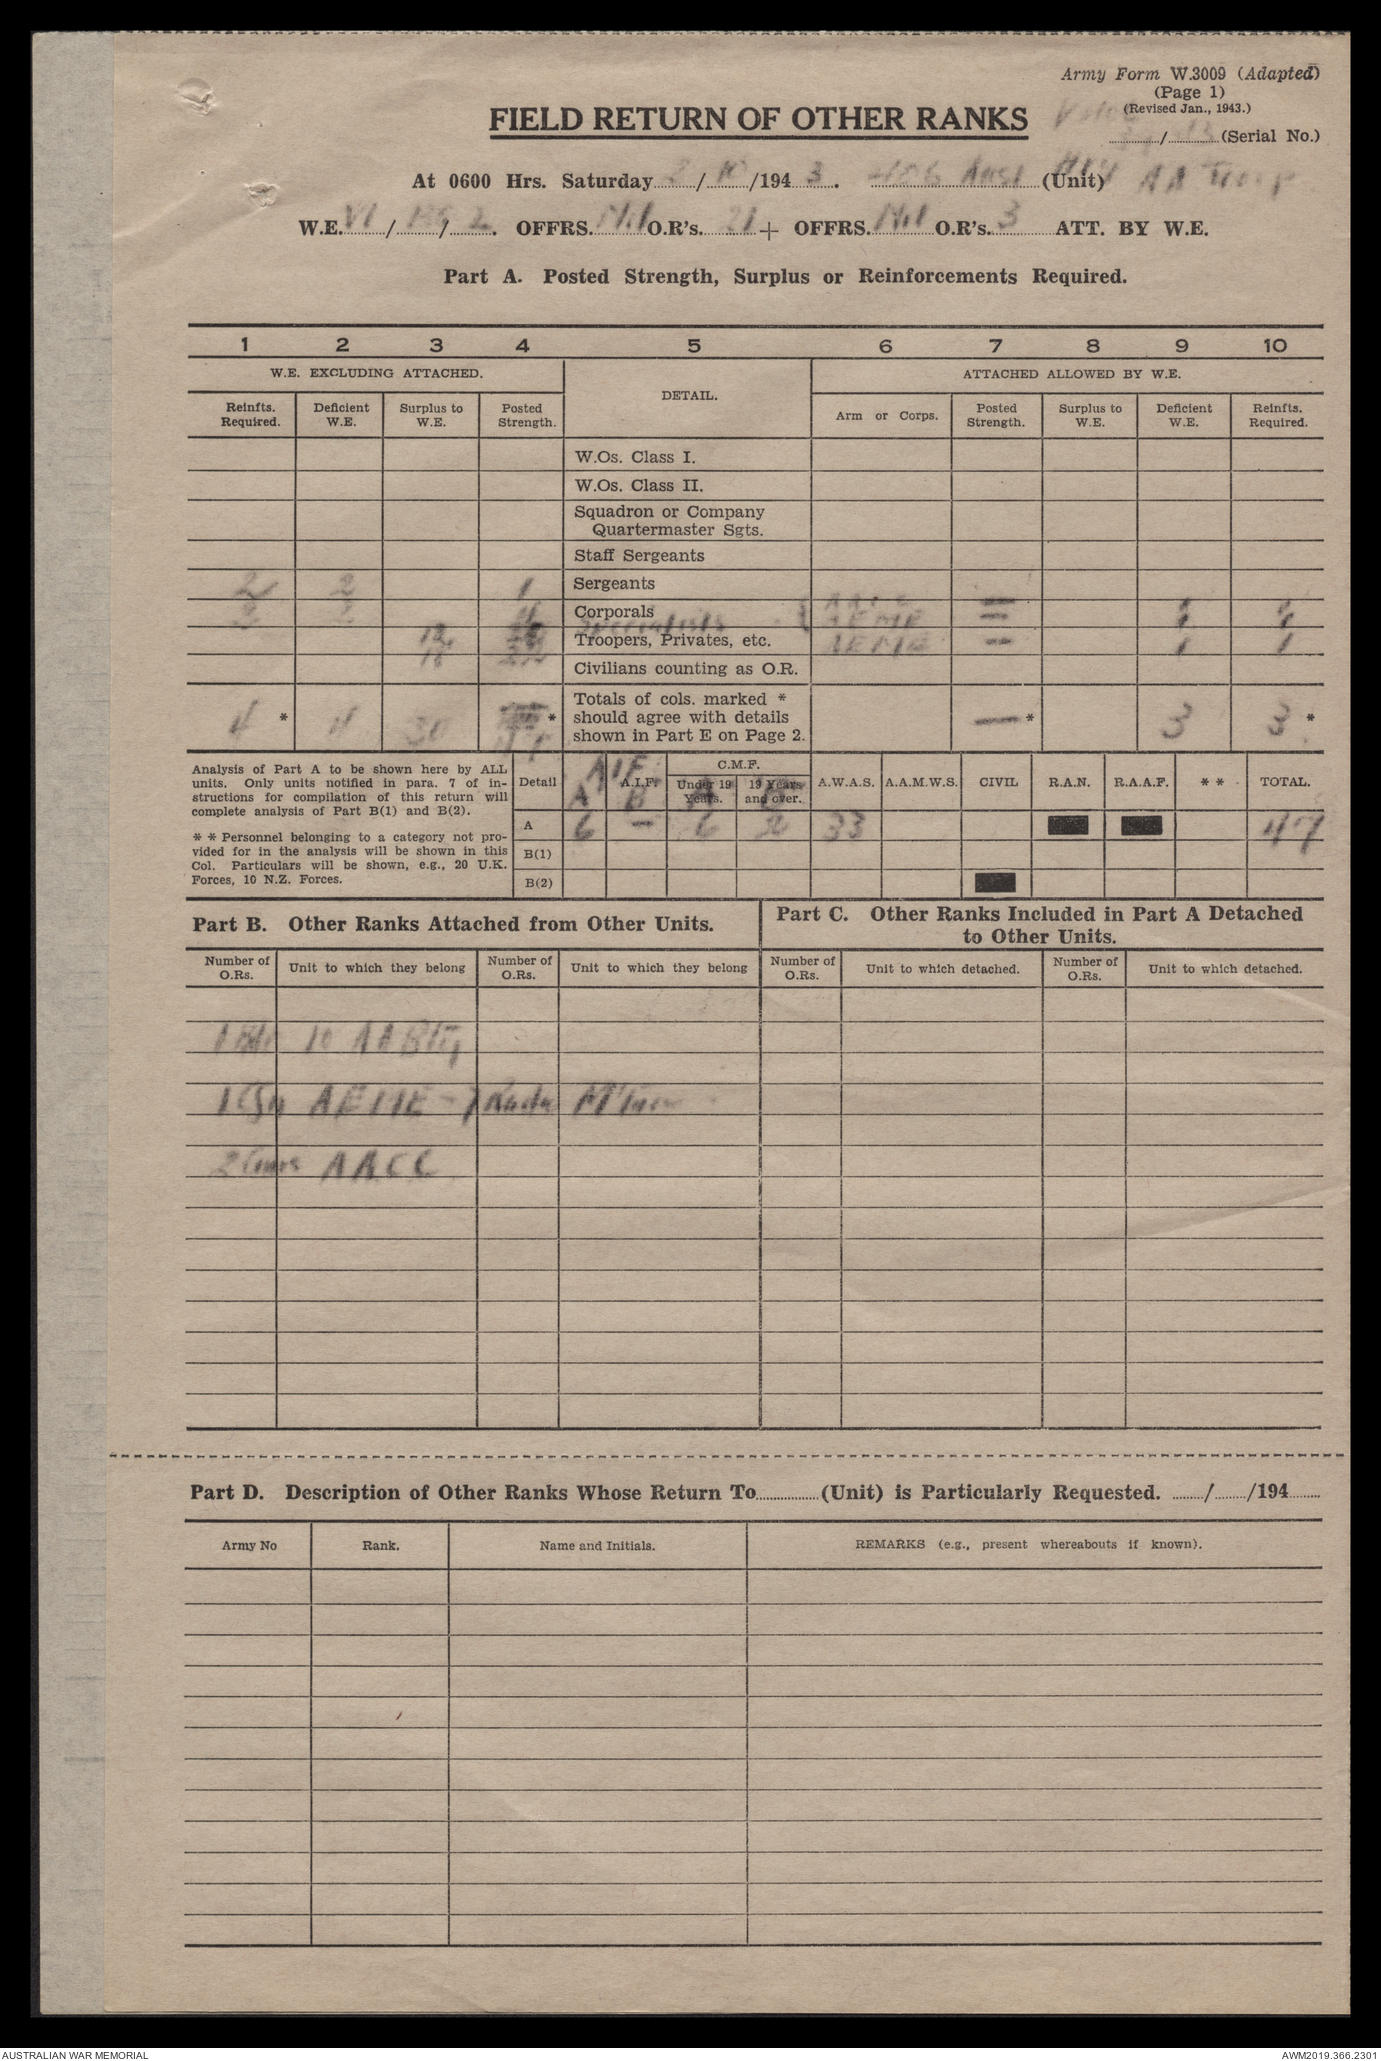 Army Form W.3009 (Adapted)
(Page 1)
(Revised Jan., 1943.)
FIELD RETURN OF OTHER RANKS
/ (Serial No.)
At 0600 Hrs. Saturday 2/10/1943. Aust (Unit) AA Troop
W.E. VI / / 2. OFFRS. Nil O.R's. 21 + OFFRS. Nil O.R's. 3 ATT. BY W.E.
Part A. Posted Strength, Surplus or Reinforcements Required.
1 2 3 4 5 6 7 8 9 10
W.E. EXCLUDING ATTACHED. DETAIL. ATTACHED ALLOWED BY W.E.
Reinfts. Required. Deficient W.E. Surplus to W.E. Posted Strength. Arm or Corps. Posted Strength. Surplus to W.E. Deficient W.E. Reinfts. Required.
W.Os. Class I.
W.Os. Class II.
Squadron or Company
Quartermaster Sgts.
Staff Sergeants
2 2 1 Sergeants
2 2 Corporals
Specialists AEME — 1 1
Troopers, Privates, etc. AEME — 1 1
18 Civilians counting as O.R.
4 * 4 30 * Totals of cols. marked * — * 3 3 *
should agree with details
shown in Part E on Page 2.
Analysis of Part A to be shown here by ALL
units. Only units notified in para. 7 of in-
structions for compilation of this return will
complete analysis of Part B(1) and B(2).
* * Personnel belonging to a category not pro-
vided for in the analysis will be shown in this
Col. Particulars will be shown, e.g., 20 U.K.
Forces, 10 N.Z. Forces.
AIF C.M.F.
Detail A A.I.F. B Under 19 Years. A 19 Years and over. B A.W.A.S. A.A.M.W.S. CIVIL R.A.N. R.A.A.F. * * TOTAL.
A 6 — 6 2 33 47
B(1)
B(2)
Part B. Other Ranks Attached from Other Units.
Part C. Other Ranks Included in Part A Detached
to Other Units.
Number of O.Rs. Unit to which they belong Number of O.Rs. Unit to which they belong Number of O.Rs. Unit to which detached. Number of O.Rs. Unit to which detached.
1 10 AA Bty
1 Cfn AEME -
2 AACC
Part D. Description of Other Ranks Whose Return To (Unit) is Particularly Requested. / /194
Army No Rank. Name and Initials. REMARKS (e.g., present whereabouts if known).
AUSTRALIAN WAR MEMORIAL AWM2019.366.2301